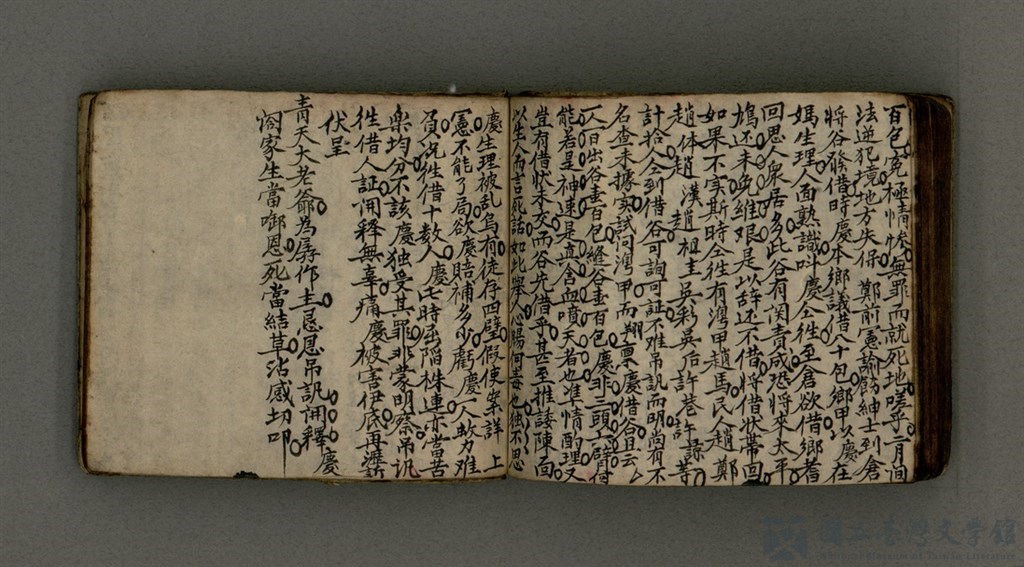 百包冤極情慘無罪而就死地嗟乎二月間
法逆犯境地方失保 鄭前憲諭飭紳士到倉
將谷發借時慶本鄉議借八十包鄉甲以慶在
媽生理人面熟識叫慶仝徃至倉欲借鄉耆
回思人衆居多此谷有関責成恐將來太平
鳩还未免維艰是以辞还不借將借状帶回
如果不实斯時仝徃有灣甲趙馬民人趙鄭
趙体趙漢趙祖圭吳彩吳后許巷許 等
計拾人仝到借谷可詢可証不难吊訊而明尚有不
名查未據实試问灣甲而翔禀慶借谷且云
仄日出谷壹百包縫谷壹百包慶非三頭六臂何
能若是神速是真含血噴天者也准情酌理又
豈有借状未交而谷先借乎甚至推諉陳面
以生人而言死話如此舉人腸何毒也独不思
慶生理被乱烏有徒存四壁假使案詳 上
憲不能了局欲慶賠補多少虧慶一人敕力难
負况徃借十数人慶亡時遭陷株連亦當苦
樂均分不該慶独受其罪非蒙明察吊訊
徃借人証開释無辜痛慶被害伊底再瀝
伏呈
青天大老爺為孱作主恳恩吊訊開釋慶
闔家生當啣恩死當結草沾感切叩
國立臺灣文學館